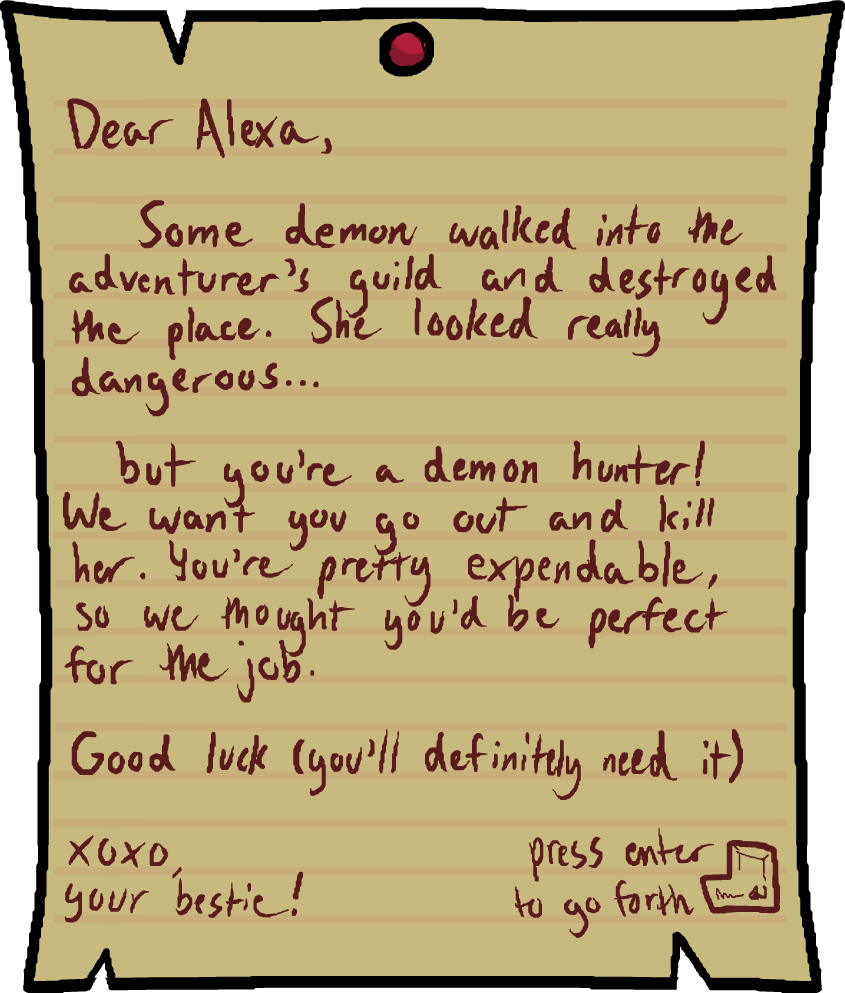 Dear Alexa,
Some demon walked into the
adventurer's guild and destroyed
the place. She looked really
dangerous...
but you're a demon hunter!
We want you go out and kill
her. You're pretty expendable,
so we thought you'd be perfect
for the job.
Good luck (you'll definitely need it)
xoxo,
your bestie!
press enter
to go forth